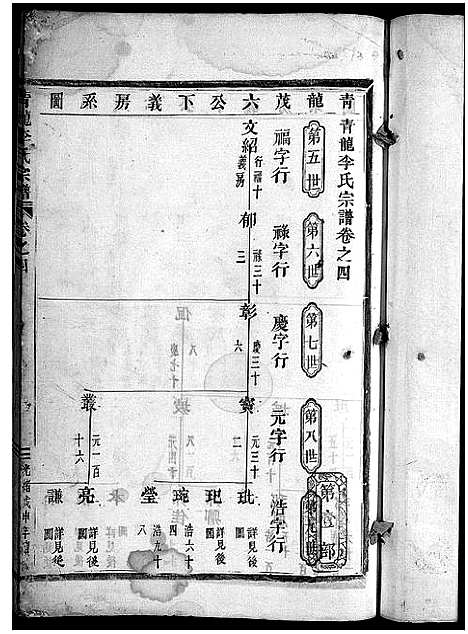 青龍李氏宗譜卷之四
青龍茂六公下義房系圖
第五世
福字行
第六世
祿字行
第七世
慶字行
第八世
元字行
第九世
浩字行
第壹部
文紹
行福十
義房
郁
祿三十
三
彰
慶三十
六
寶
元三十
二
叢
元一百
十六
玭
詳見後
圖
玘
詳見後
圖
琬
浩六十
四
瑩
浩九十
八
亮
詳見後
圖
謙
詳見後
圖
青龍李氏宗譜
卷之四